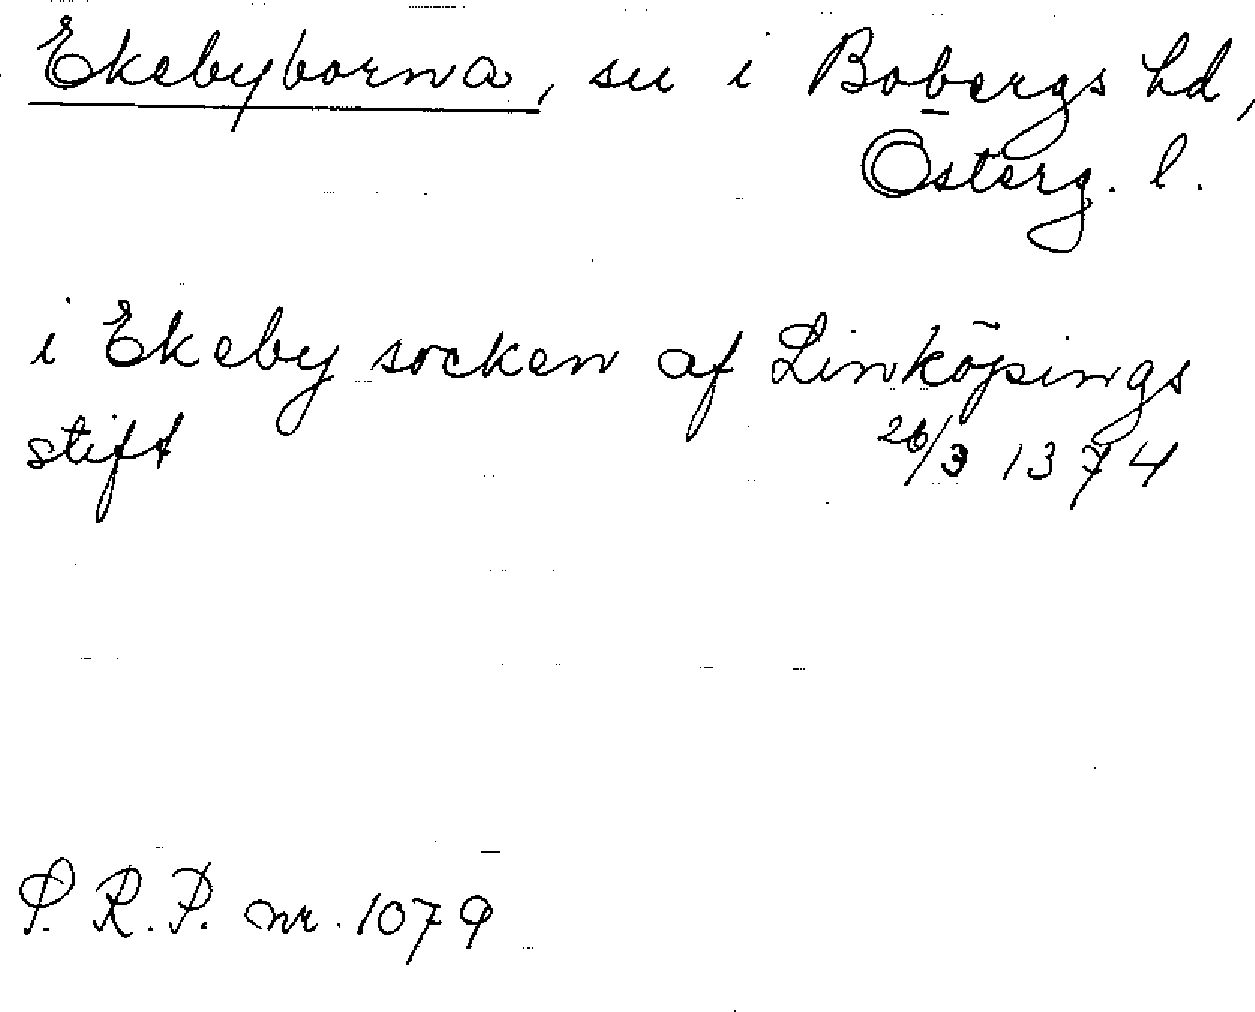 Ekebyborna, su i Bobergs hd,
Österg. l.
i Ekeby socken af Linköpings
stift 26/3 1374
S. R. P. nr. 1079